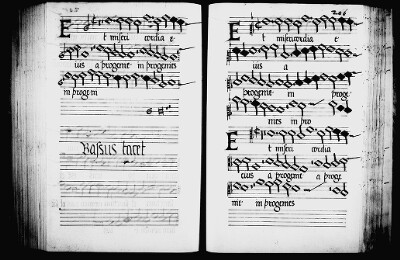 Et misericordia e
ius a progenie in progenies
in progenii
Bassus tacet
246
Et misericordia e
ius a
progenie in proge
nies in pro
Et misericordia
eius a progenie a proge
nie in progenies